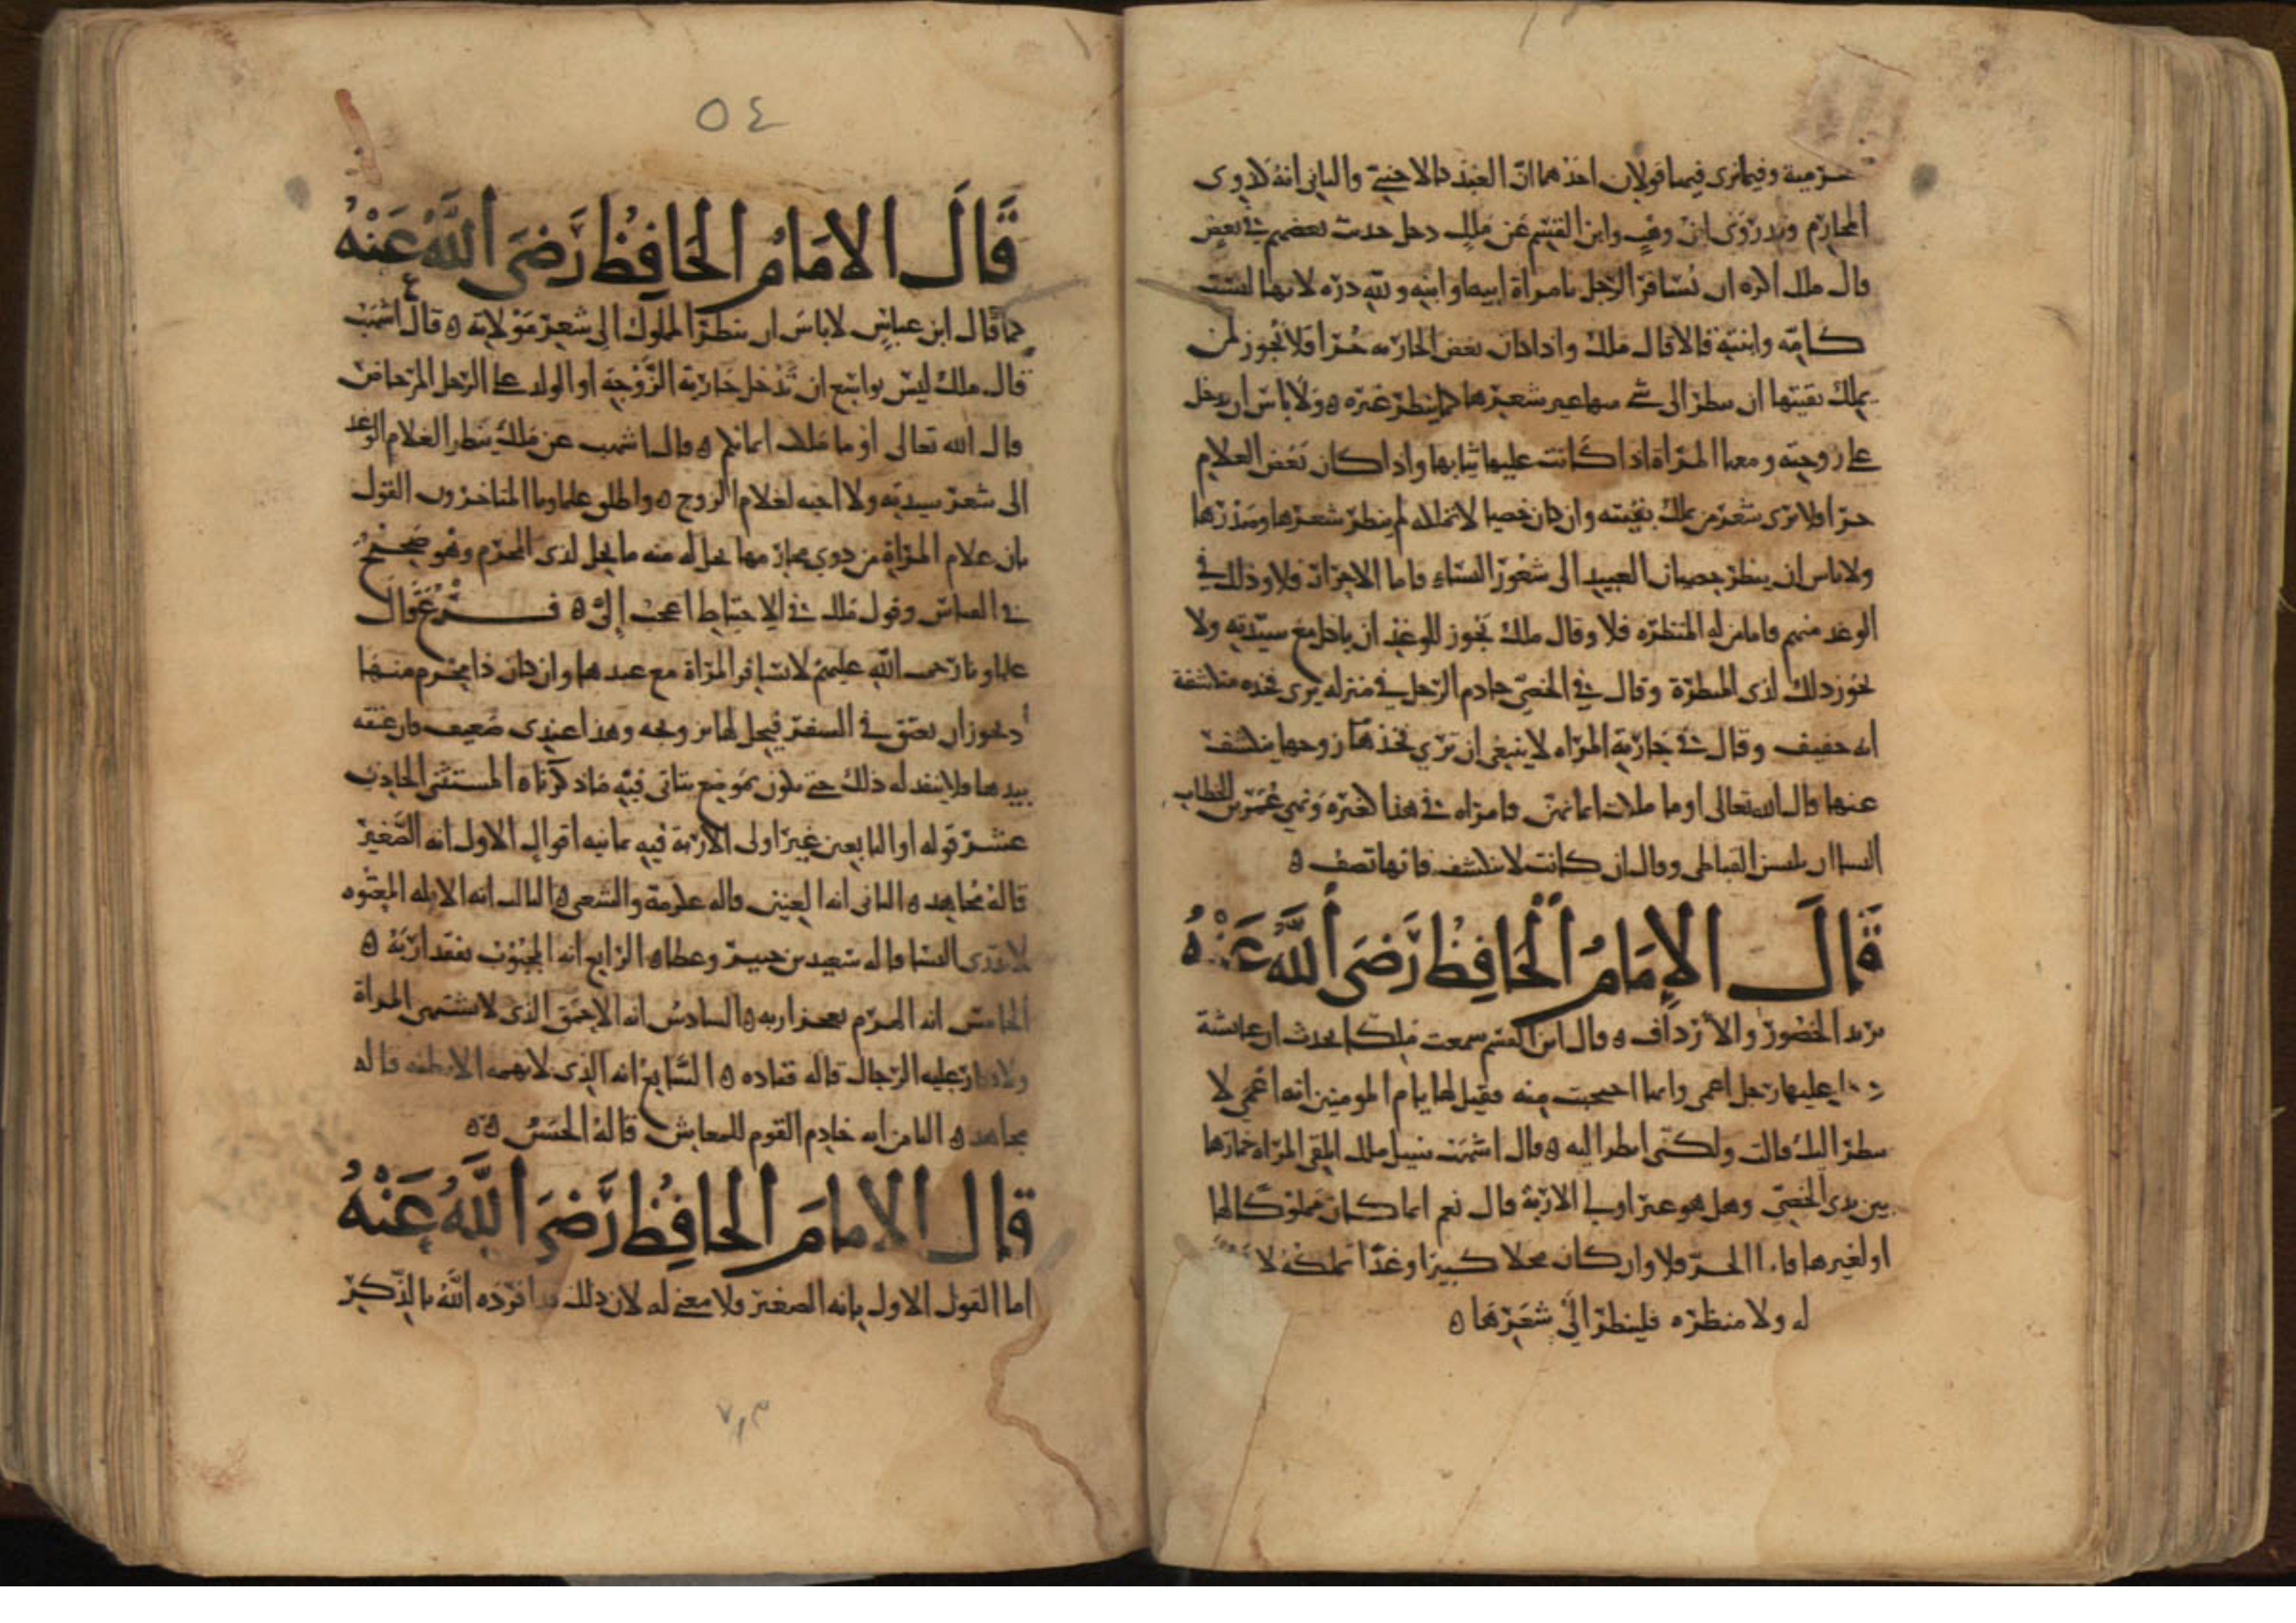 حرمية وفيما ترى فيها قولان احدهما ان العبد كالاجنبي والثاني انه كذوي
المحارم وقد روى ابن وهب وابن القسم عن ملك دخل حديث بعضهم في بعض
قال ملك اكره ان يسافر الرجل بامراة ابيه او ابنه ولله دره لانها ليست
كامه وابنته قالا قال ملك واذا كان بعض الجارية حرا فلا يجوز لمن
يملك بقيتها ان ينظر الى شي منها غير شعرها كما ينظر غيره ولا باس ان يدخل
على زوجته ومعها المراة اذا كانت عليها ثيابها واذا كان بعض الغلام
حرا فلا يرى شعر من يملك بقيته وان كان خصيا لا تملكه لم ينظر شعرها وصدرها
ولا باس ان ينظر خصيان العبيد الى شعور النساء فاما الاحرار فلا وذلك في
الوغد منهم فاما من له المنظره فلا وقال ملك يجوز للوغد ان ياكل مع سيدته ولا
يجوز ذلك لذي المنظرة وقال في الخصي خادم الرجل في منزله يرى فخذه منكشفة
انه خفيف وقال في جارية المراه لا ينبغي ان ترى فخذها زوجها ينكشف
عنها قال الله تعالى او ما ملكت ايمانهن وامراه في هذا كغيره ونهي عمر بن الخطاب
النسا ان يلبسن القباطي وقال ان كانت لا تنكشف فانها تصف ه
قال الامام الحافظ رضي الله عنه
يريد الخصور والارداف ه وقال ابن القسم سمعت ملكا يحدث ان عائشة
دخل عليها رجل اعمى وانها احتجبت منه فقيل لها يام المومنين انه اعمى لا
ينظر اليك قالت ولكني انظر اليه ه قال اشهب سيل ملك اتلقي المراه خمارها
بين يدي الخصي وهل هو غير اولي الاربة قال نعم اذا كان مملوكا لها
او لغيرها فاما الحر فلا وان كان فحلا كبيرا وغدا تملكه لا
له ولا منظره فلينظر الى شعرها ه
٥٤
قال الامام الحافظ رضي الله عنه
كما قال ابن عباس لا باس ان ينظر المملوك الى شعر مولاته ه قال اشهب
قال ملك ليس بواسع ان تدخل جارية الزوجة او الولد على الرجل المرحاض
قال الله تعالى او ما ملكت ايمانكم ه وقال اشهب عن ملك ينظر الغلام الوغد
الى شعر سيدته ولا احبه لغلام الزوج ه واطلق علماونا المتاخرون القول
بان غلام المراة من ذوي محارمها يحل له منه ما يحل لذي المحرم وهو صحيح
في القياس وقول ملك في الاحتياط اعجب الي ه فرع قال
علماونا رحمة الله عليهم لا تسافر المراة مع عبدها وان كان ذا محرم منها
اذ يجوز ان يعتق في السفر فيحل لها تزوجه وهذا عندي ضعيف فان عتقه
بيدها فلا ينفذ له ذلك حتى يكون بموضع يتاتى فيه ما ذكرناه المستثنى الحادي
عشر قوله او التابعين غير اولى الاربة فيه ثمانيه اقوال الاول انه الصغير
قاله مجاهد ه الثاني انه العنين قاله عكرمة والشعبي ه الثالث انه الابله المعتوه
لا يدري النسا قاله سعيد بن جبير وعطا ه الرابع انه المجبوب لفقد اربه ه
الخامس انه الهرم لعجز اربه ه السادس انه الاحمق الذي لا يشتهي المراة
ولا يغار عليه الرجال قاله قتاده ه السابع انه الذي لا يهمه الا بطنه قاله
مجاهد ه الثامن انه خادم القوم للمعاش قاله الحسن ه ه
قال الامام الحافظ رضي الله عنه
اما القول الاول بانه الصغير فلا معنى له لان ذلك قد افرده الله بالذكر